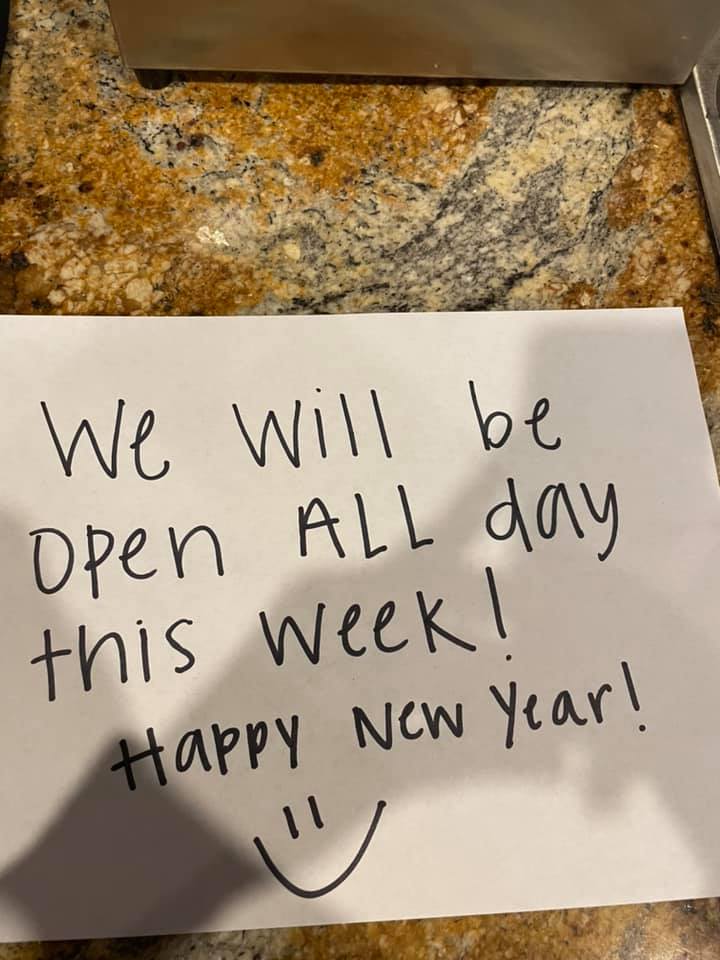 We will be
open ALL day
this week!
Happy New Year!